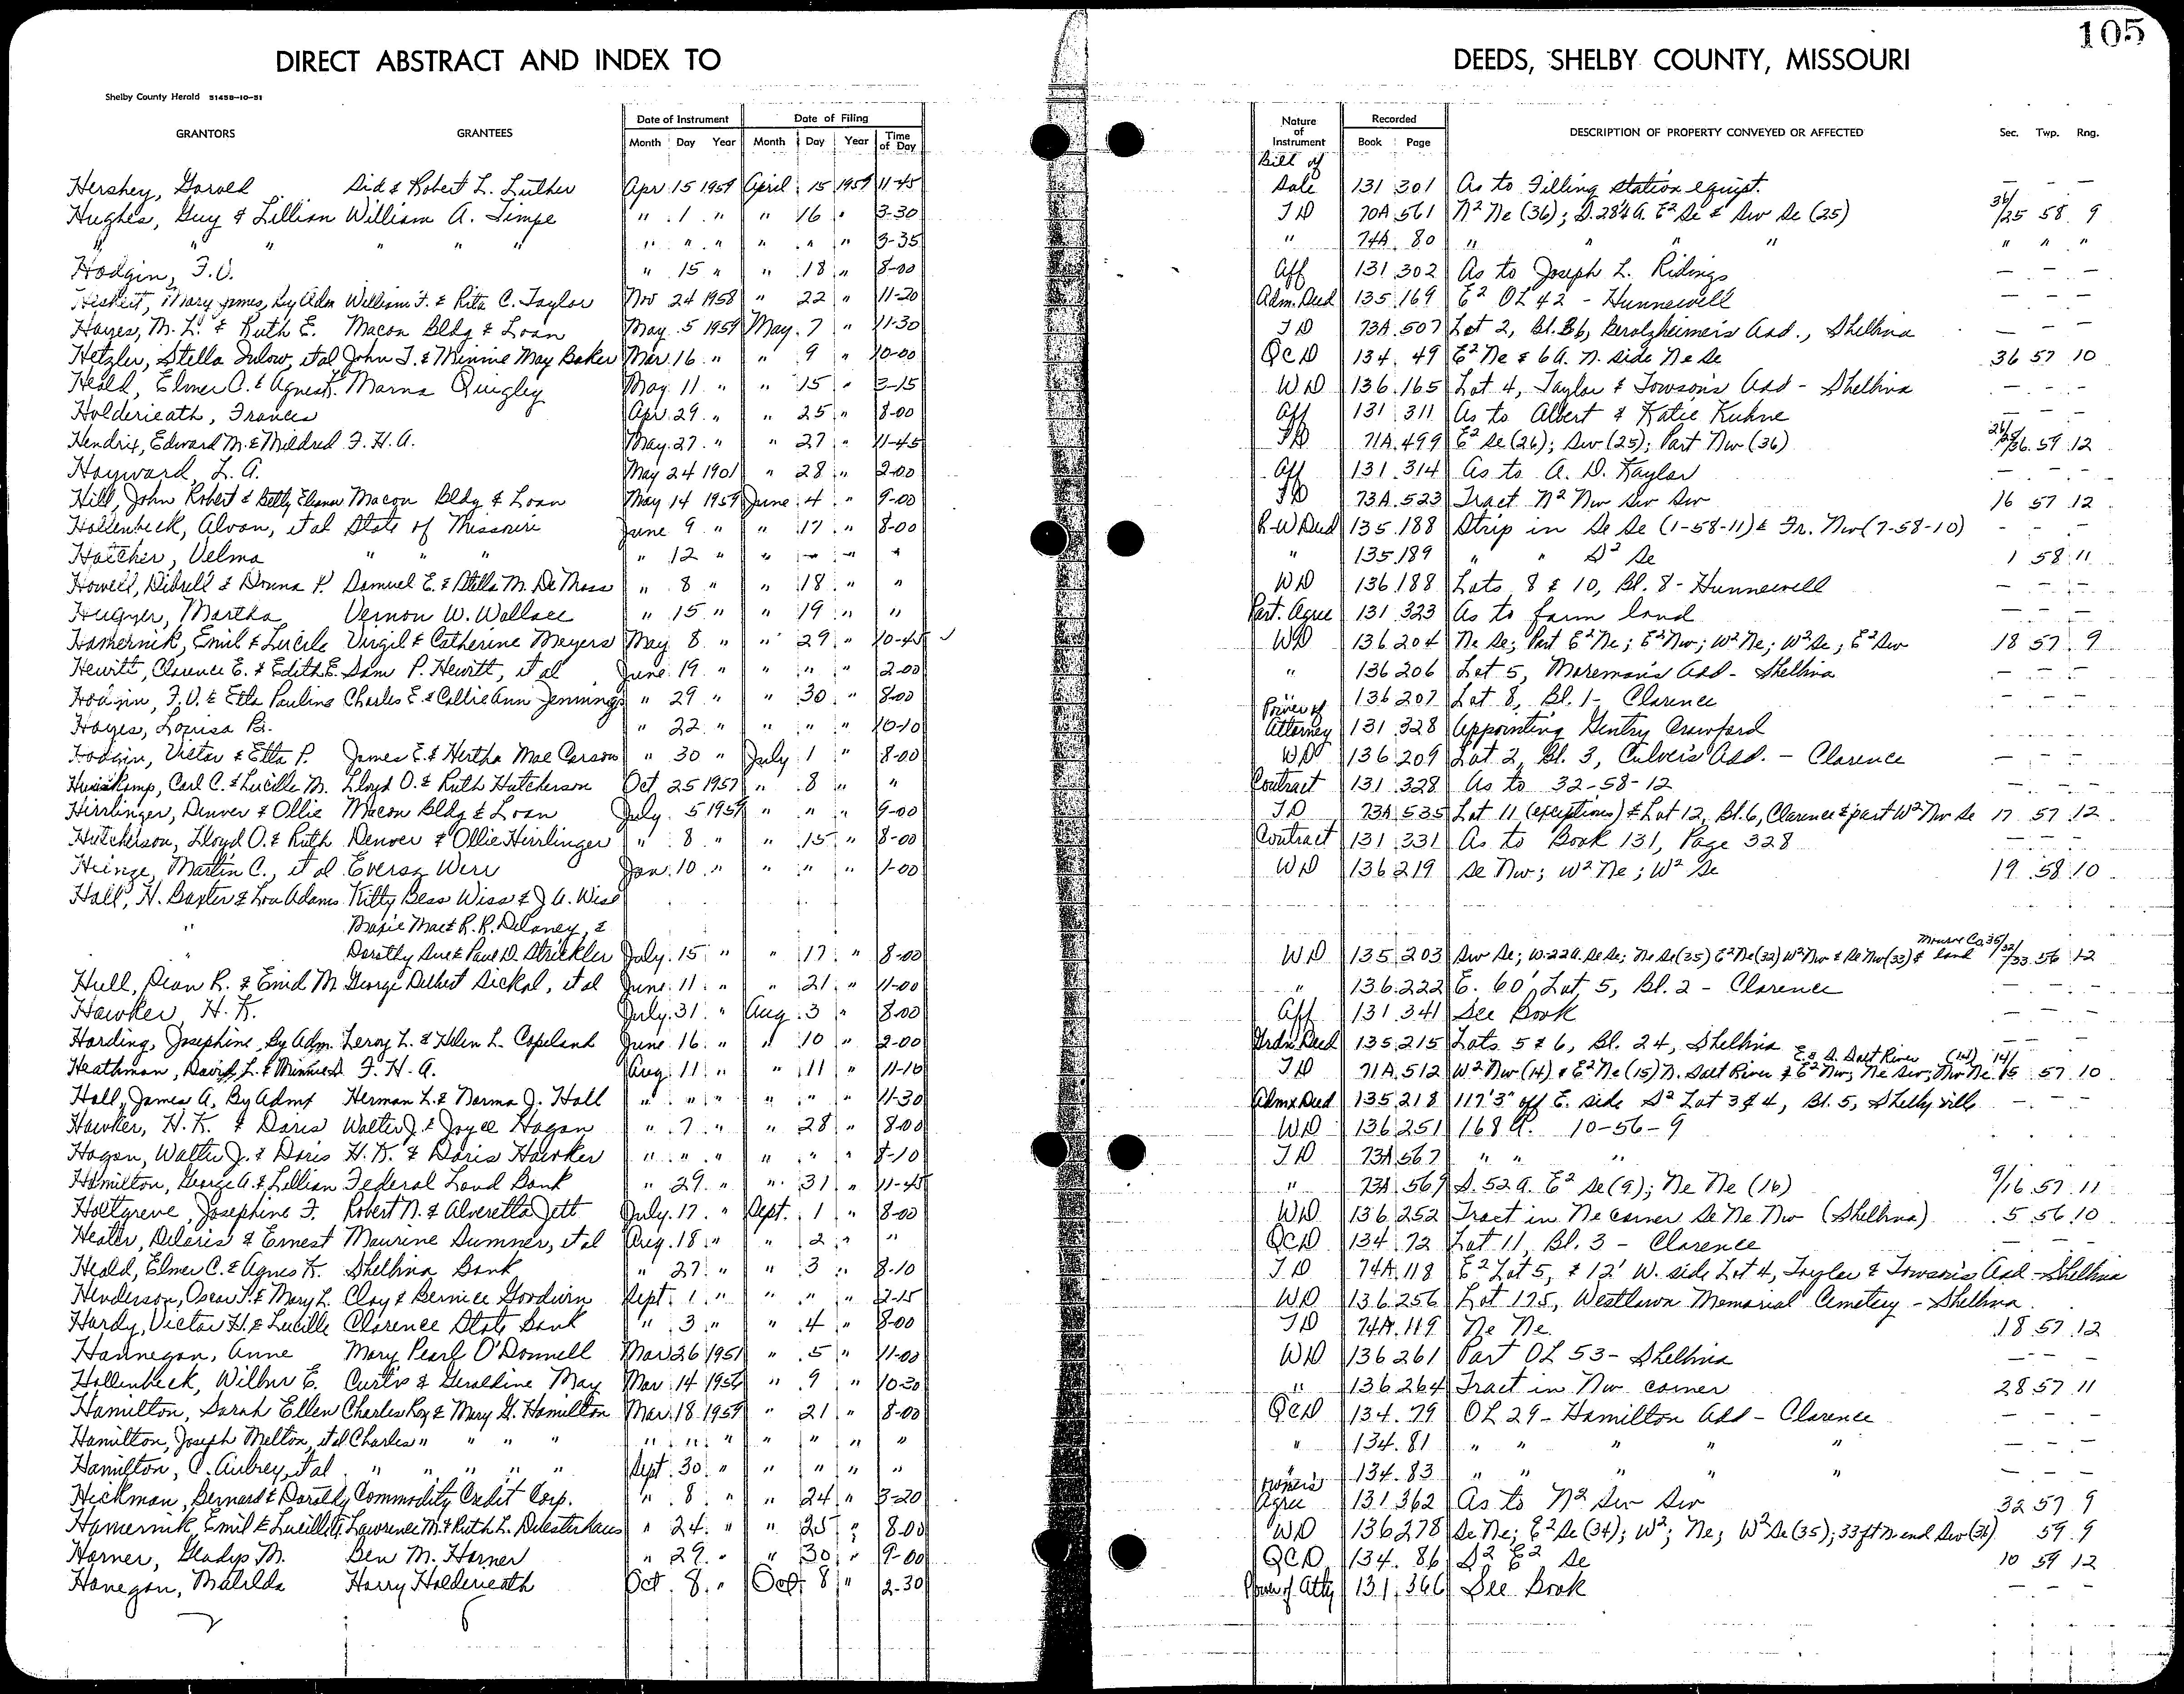 105
DIRECT ABSTRACT AND INDEX TO DEEDS, SHELBY COUNTY, MISSOURI
Shelby County Herald 51458-10-51
GRANTORS GRANTEES Date of Instrument Date of Filing Nature of Instrument Recorded DESCRIPTION OF PROPERTY CONVEYED OR AFFECTED Sec. Twp. Rng.
Month Day Year Month Day Year Time of Day Book Page
Hershey, Garold Sid & Robert L. Luther Apr 15 1959 April 15 1959 11-45 Bill of Sale 131 301 As to Filling station equipt. — — —
Hughes, Guy & Lillian William A. Timpe " 1 " " 16 " 3-30 TD 70A 561 N² Ne (36); S. 28¼ A. E² Se & Sw Se (25) 36/25 58 9
" " " " " " " " " " " " 3-35 " 74A 80 " " " " " "
Hodgin, F.V. " 15 " " 18 " 8-00 Aff 131 302 As to Joseph L. Ridings — — —
Mary James, By Adm William F. & Rita C. Taylor Nov 24 1958 " 22 " 11-20 Adm. Deed 135 169 E² OL 42 - Hunnewell — — —
Hayes, M. L. & Ruth E. Macon Bldg & Loan May 5 1959 May 7 " 11-30 TD 73A 507 Lot 2, Bl. 36, Gerolzheimers Add., Shelbina — — —
Hetzler, Stella Inlow, et al John T. & Minnie May Baker Mar. 16 " " 9 " 10-00 QCD 134 49 E² Ne & 6 A. N. side Ne Se 36 57 10
Heald, Elmer C. & Agnes K. Marna Quigley May 11 " " 15 " 3-15 WD 136 165 Lot 4, Taylor & Towson's Add - Shelbina — — —
Holderieath, Frances Apr. 29 " " 25 " 8-00 Aff 131 311 As to Albert & Katie Kuhne — — —
Hendrix, Edward M. & Mildred F. H. A. May 27 " " 27 " 11-45 TD 71A 499 E² Se (26); Sw (25); Part Nw (36) 26/25/36 59 12
Hayward, L. A. May 24 1901 " 28 " 2-00 Aff 131 314 As to A. D. Kaylor — — —
Hill, John Robert & Betty Eleanor Macon Bldg & Loan May 14 1959 June 4 " 9-00 TD 73A 523 Tract N² Nw Sw Sw 16 57 12
Hollenbeck, Alvon, et al State of Missouri June 9 " " 17 " 8-00 R-W Deed 135 188 Strip in Se Se (1-58-11) & Fr. Nw (7-58-10) — — —
Hatcher, Velma " " " " 12 " " " " " " 135 189 " " S² Se 1 58 11
Howell, Dibrell & Donna P. Samuel E. & Stella M. De Moss " 8 " " 18 " " WD 136 188 Lots 8 & 10, Bl. 8 - Hunnewell — — —
Martha Vernon W. Wallace " 15 " " 19 " " Part. Agree 131 323 As to farm land — — —
Hamernik, Emil & Lucile Virgil & Catherine Meyers May 8 " " 29 " 10-45 ✓ WD 136 204 Ne Se; Part E² Ne; E² Nw; W² Ne; W² Se; E² Sw 18 57 9
Hewitt, Clarence E. & Edith E. Sam P. Hewitt, et al June 19 " " " " 2-00 " 136 206 Lot 5, Moreman's Add - Shelbina — — —
Hodgin, F. V. & Etta Pauline Charles E. & Callie Ann Jennings " 29 " " 30 " 8-00 " 136 207 Lot 8, Bl. 1 - Clarence — — —
Hayes, Louisa B. " 22 " " " " 10-10 Power of Attorney 131 328 Appointing Gentry Crawford
Hodgin, Victor & Etta P. James E. & Hertha Mae Carson " 30 " July 1 " 8-00 WD 136 209 Lot 2, Bl. 3, Culver's Add. - Clarence — — —
Huiskamp, Carl C. & Lucille M. Lloyd O. & Ruth Hutcherson Oct 25 1957 " 8 " " Contract 131 328 As to 32-58-12 — — —
Hirrlinger, Denver & Ollie Macon Bldg & Loan July 5 1959 " " " 9-00 TD 73A 535 Lot 11 (exceptions) & Lot 12, Bl. 6, Clarence & part W² Nw Se 17 57 12
Hutcherson, Lloyd O. & Ruth Denver & Ollie Hirrlinger " 8 " " 15 " 8-00 Contract 131 331 As to Book 131, Page 328 — — —
Heinze, Martin C., et al Eversz Werr Jan. 10 " " " " 1-00 WD 136 219 Se Nw; W² Ne; W² Se 19 58 10
Hall, H. Baxter & Lou Adams Kitty Bess Wiss & J. A. Wise
" Marie Mae & R. R. Delaney, &
" Dorothy Sue & Paul D. Strickler July 15 " " 17 " 8-00 WD 135 203 Sw Se; W. 22 A. Se Se; Ne Se (35) E² Ne (32) W² Nw & Se Nw (33) & Monroe Co. land 35/32/33 56 12
Hull, Dean R. & Enid M. George Delbert Sickal, et al June 11 " " 21 " 11-00 " 136 222 E. 60', Lot 5, Bl. 2 - Clarence — — —
Hawker, H. K. July 31 " Aug 3 " 8-00 Aff 131 341 See Book — — —
Harding, Josephine, By Adm. Leroy L. & Helen L. Copeland June 16 " " 10 " 2-00 Grdn. Deed 135 215 Lots 5 & 6, Bl. 24, Shelbina — — —
Heathman, David L. & Minnie S. F. H. A. Aug 11 " " 11 " 11-10 TD 71A 512 W² Nw (14) & E² Ne (15) N. Salt River & E² Nw; Ne Sw; Nw Ne E. & S. Salt River (14) 14/15 57 10
Hall, James A. By Admx Herman L. & Norma J. Hall " " " " " " 11-30 Admx Deed 135 218 117'3" off E. side S² Lot 3 & 4, Bl. 5, Shelbyville — — —
Hawker, H. K. & Doris Walter J. & Joyce Hagan " 7 " " 28 " 8-00 WD 136 251 168 A. 10-56-9
Hagan, Walter J. & Doris H. K. & Doris Hawker " " " " " " 8-10 TD 73A 567 " " "
Hamilton, George A. & Lillian Federal Land Bank " 29 " " 31 " 11-45 " 73A 569 S. 52 A. E² Se (9); Ne Ne (16) 9/16 57 11
Holtgreve, Josephine F. Robert N. & Alveretta Jett July 17 " Sept. 1 " 8-00 WD 136 252 Tract in Ne corner Se Ne Nw (Shelbina) 5 56 10
Delaris & Ernest Maurine Sumner, et al Aug. 18 " " 2 " " QCD 134 72 Lot 11, Bl. 3 - Clarence — —
Heald, Elmer C. & Agnes K. Shelbina Bank " 27 " " 3 " 8-10 TD 74A 118 E² Lot 5, & 12' W. side Lot 4, Taylor & Towson's Add - Shelbina
Henderson, Oscar P. & Mary L. Clay & Bernice Goodwin Sept. 1 " " " " 2-15 WD 136 256 Lot 175, Westlawn Memorial Cemetery - Shelbina
Hardy, Victor H. & Lucille Clarence State Bank " 3 " " 4 " 8-00 TD 74A 119 Ne Ne. 18 57 12
Hannegan, Anne Mary Pearl O'Donnell Mar 26 1951 " 5 " 11-00 WD 136 261 Part OL 53 - Shelbina — — —
Hollenbeck, Wilbur E. Curtis & Geraldine May Mar 14 1956 " 9 " 10-30 " 136 264 Tract in Nw corner 28 57 11
Hamilton, Sarah Ellen Charles Roy & Mary G. Hamilton Mar. 18 1959 " 21 " 8-00 QCD 134 79 OL 29 - Hamilton Add - Clarence — — —
Hamilton, Joseph Melton, et al Charles " " " " " " " " " " " " 134 81 " " " " " — — —
Hamilton, C. Aubrey, et al " " " " " Sept. 30 " " " " " " 134 83 " " " " " — — —
Hickman, Bernard & Dorothy Commodity Credit Corp. " 8 " " 24 " 3-20 Owner's Agree 131 362 As to N² Sw Sw 32 57 9
Hamernik, Emil & Lucille G. Lawrence M. & Ruth L. Duesterhaus " 24 " " 25 " 8-00 WD 136 278 Se Ne; E² Se (34); W²; Ne; W² Se (35); 33 ft N. end Sw (36) 59 9
Harner, Gladys M. Ben M. Harner " 29 " " 30 " 9-00 QCD 134 86 S² E² Se 10 59 12
Hanegan, Matilda Harry Holderieath Oct. 8 " Oct. 8 " 2-30 Power of Atty 131 366 See Book — — —